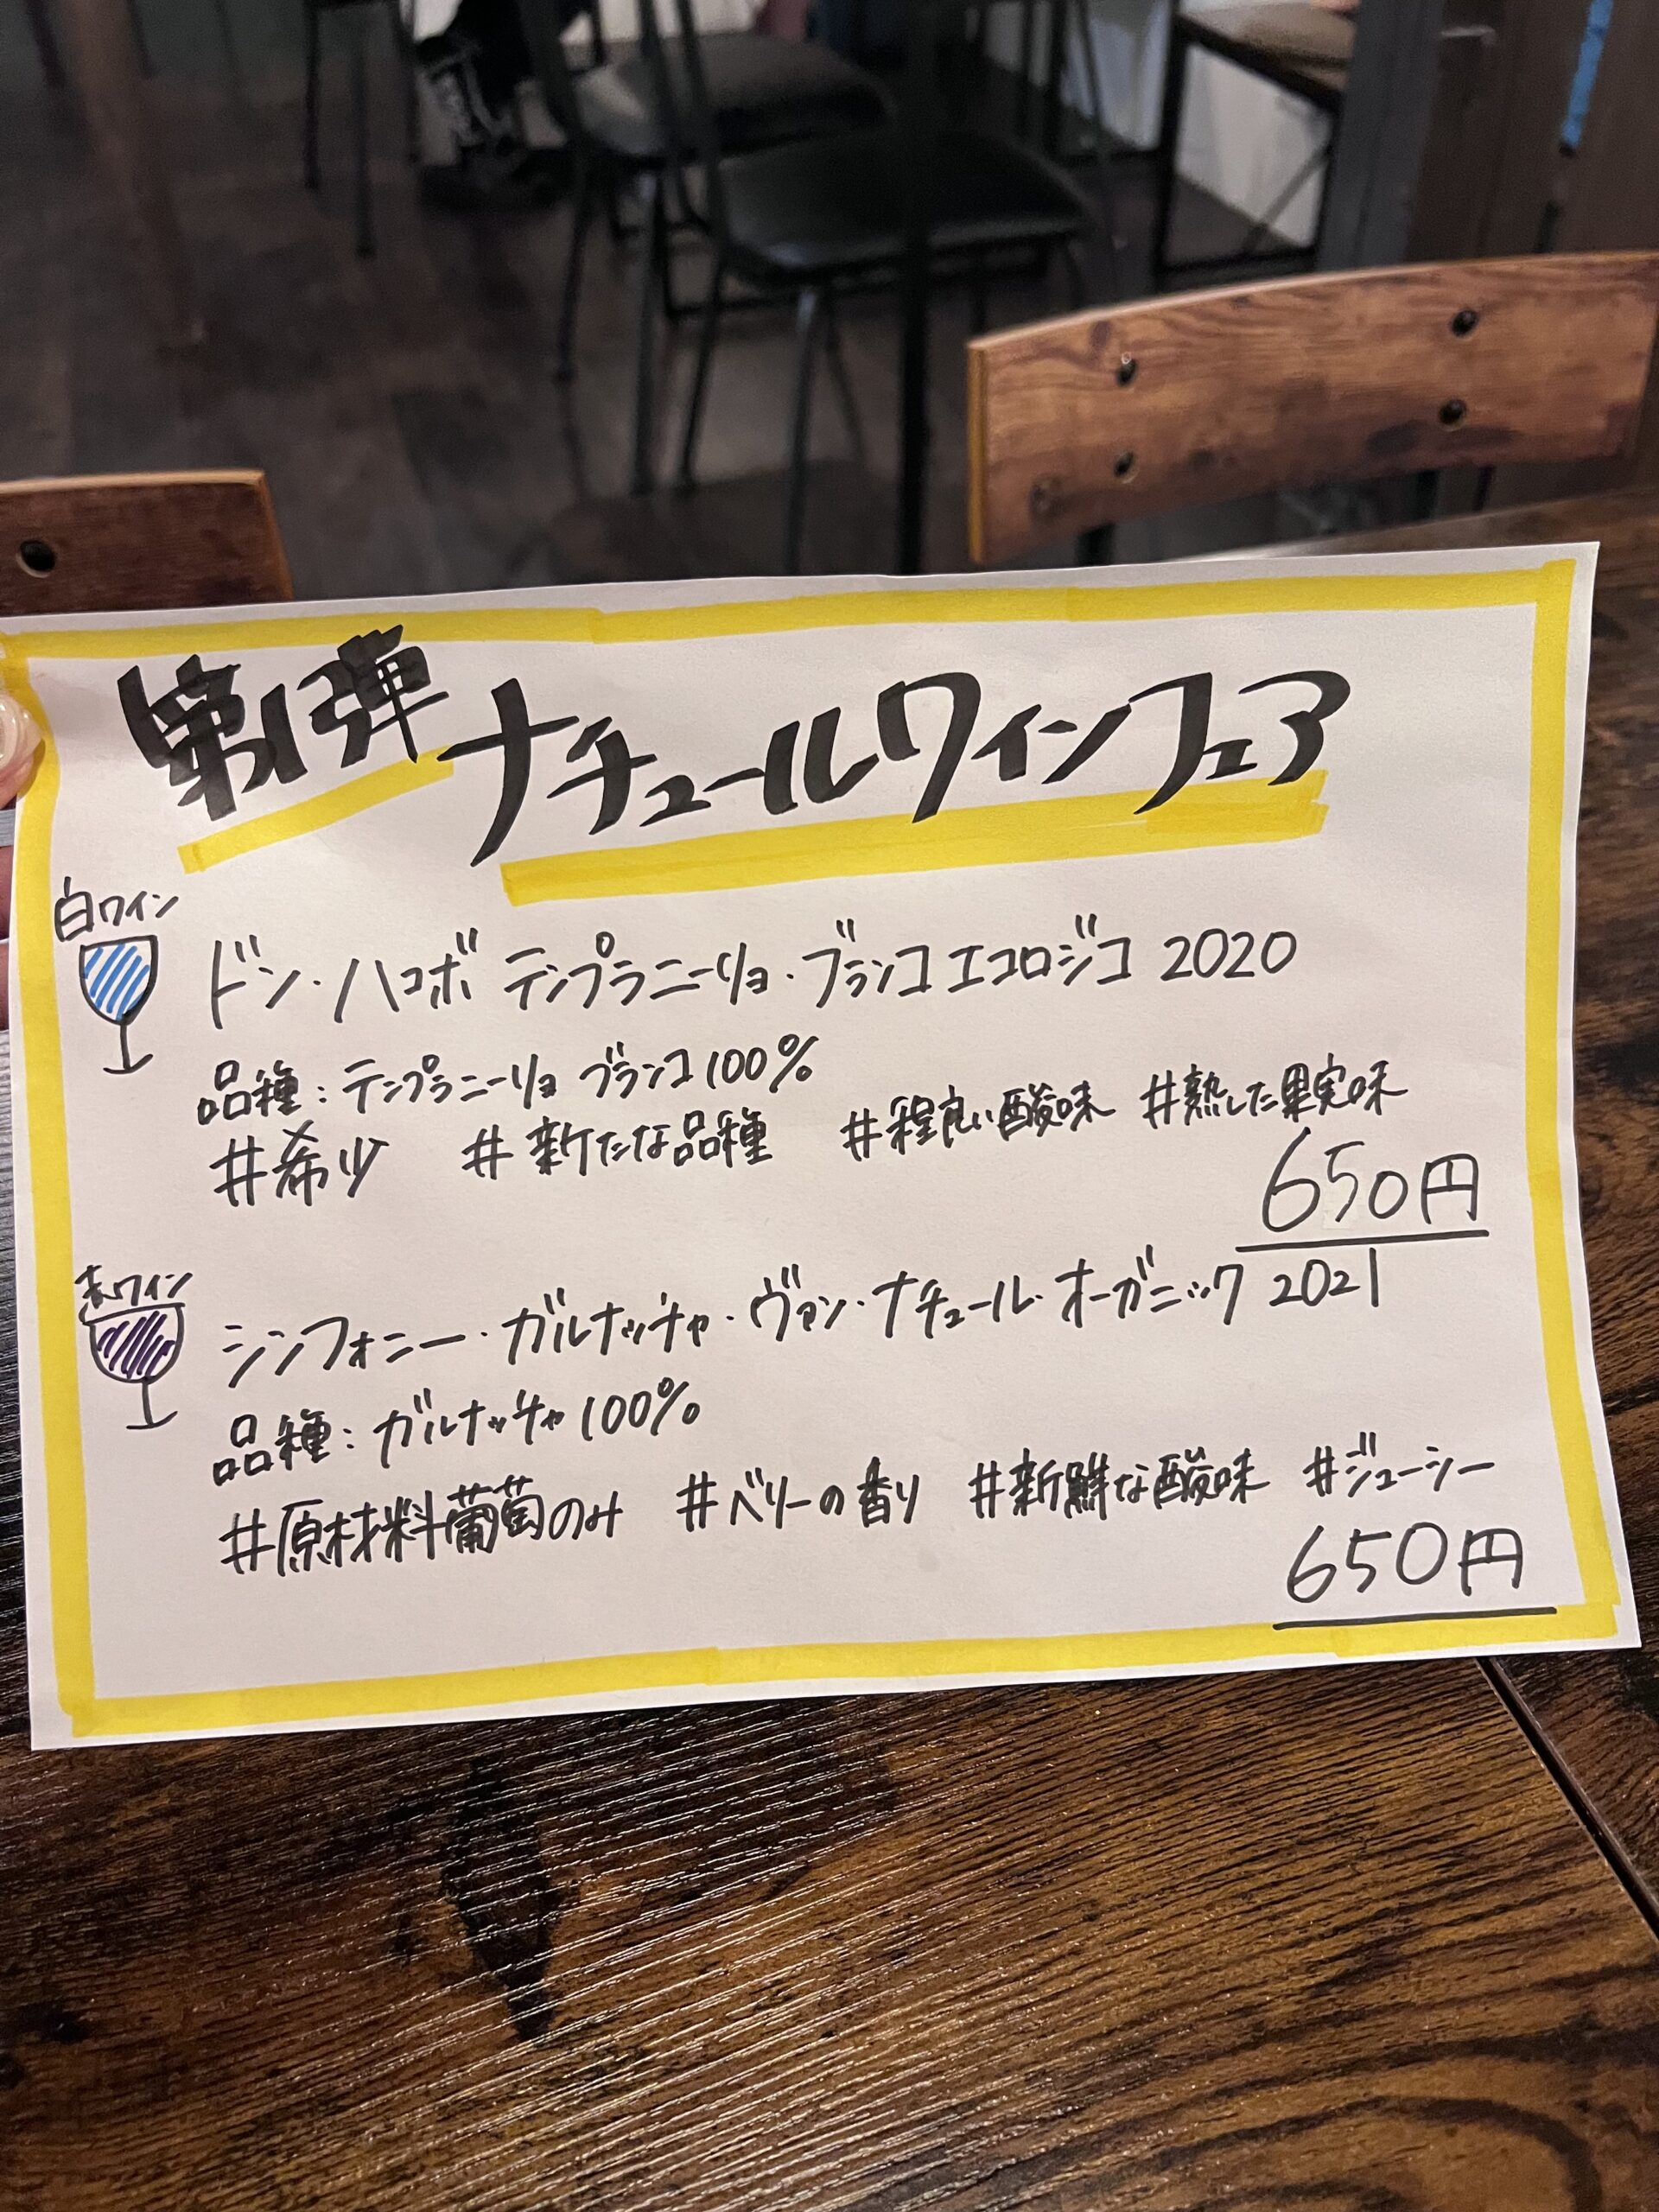 第1弾 ナチュールワインフェア
白ワイン
ドン・ハコボ テンプラニーリョ・ブランコ エコロジコ 2020
品種:テンプラニーリョ ブランコ100%
#希少 #新たな品種 #程良い酸味 #熟した果実味
650円
赤ワイン
シンフォニー・ガルナッチャ・ヴァン・ナチュール・オーガニック 2021
品種:ガルナッチャ100%
#原材料葡萄のみ #ベリーの香り #新鮮な酸味 #ジューシー
650円